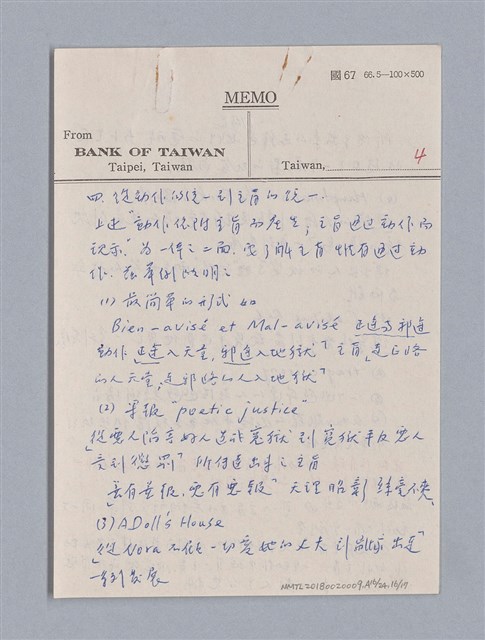 國67 66.5—100×500
MEMO
From
BANK OF TAIWAN
Taipei, Taiwan
Taiwan,
4
四. 從動作的統一到主旨的統一
上述"動作依附主旨而產生, 主旨通過動作而
現示" 為一体之二面. 要了解主旨惟有通過動
作. 茲舉例說明之
(1) 最簡單的形式如
Bien-avisé et Mal-avisé 正道與邪道
動作「正道入天堂, 邪道入地獄」主旨「走正路
的人入天堂, 走邪路的人入地獄」
(2) 果報 "poetic justice"
「從惡人陷害好人造成冤獄到冤獄平反惡人
受到懲罰」所付述出來之主旨
「善有善報, 惡有惡報」天理昭彰 絲毫不爽
(3) A Doll's House
「從Nora 不信一切愛她的丈夫到離家出走」
一系列發展
NMTL20180020009.A16/24.16/19